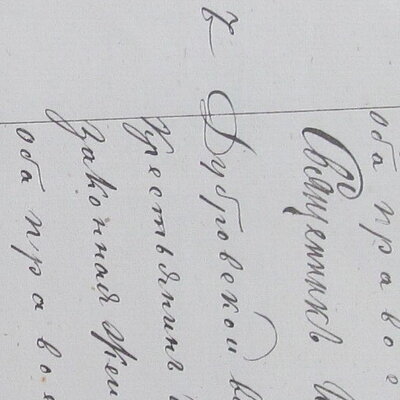 оба право
Священникъ
Дубровской во
Крестьянинъ
Законная жен
оба право